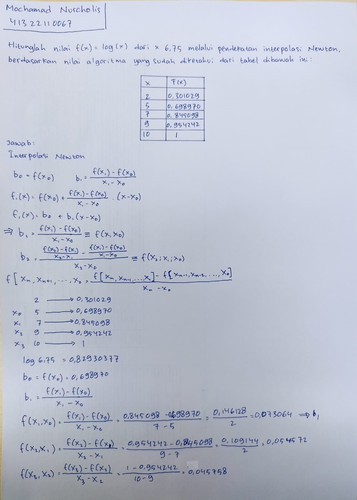 Mochamad Nurcholis
41322110067
Hitunglah nilai f(x) = log(x) dari x 6,75 melalui pendekatan interpolasi Newton,
berdasarkan nilai algoritma yang sudah diketahui dari tabel dibawah ini:
x f(x)
2 0,301029
5 0,698970
7 0,845098
9 0,954242
10 1
Jawab:
Interpolasi Newton
b₀ = f(x₀) b₁ = f(x₁) - f(x₀) / x₁ - x₀
f₁(x) = f(x₀) + f(x₁) - f(x₀) / x₁ - x₀ . (x - x₀)
f₁(x) = b₀ + b₁(x - x₀)
⇒ b₁ = f(x₁) - f(x₀) / x₁ - x₀ ≡ f(x₁,x₀)
b₂ = f(x₂) - f(x₁) / x₂ - x₁ - f(x₁) - f(x₀) / x₁ - x₀ / x₂ - x₀ ≡ f(x₂; x₁; x₀)
2 → 0,301029
x₀ 5 → 0,698970
x₁ 7 → 0,845098
x₂ 9 → 0,954242
x₃ 10 → 1
log 6,75 = 0,82930377
b₀ = f(x₀) = 0,698970
b₁ = f(x₁) - f(x₀) / x₁ - x₀
f(x₁,x₀) = f(x₁) - f(x₀) / x₁ - x₀ = 0,845098 - 698970 / 7 - 5 = 0,146128 / 2 = 0,073064 ⇒ b₁
0,954242 - 0,845098 / 9 - 7 = 0,109144 / 2 = 0,054572
1 - 0,954242 / 10 - 9 = 0,045758